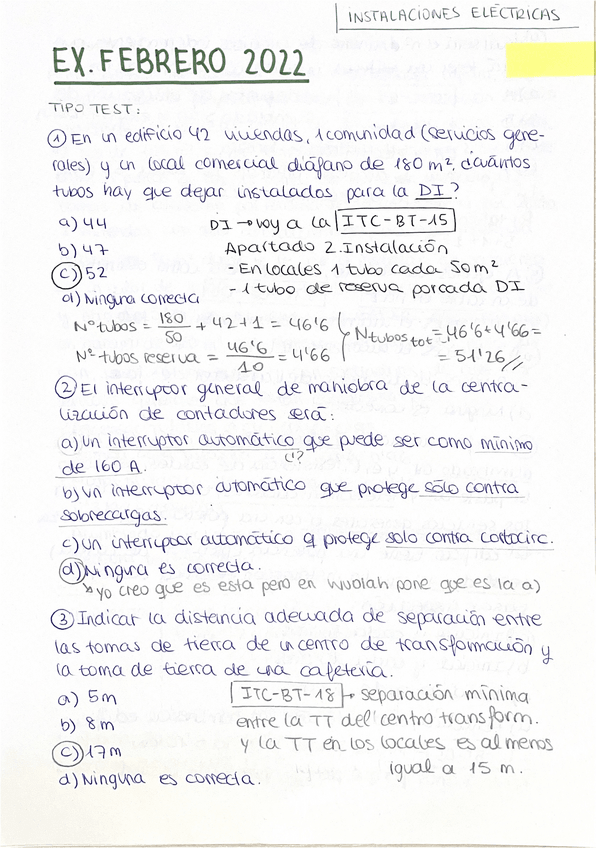 INSTALACIONES ELÉCTRICAS
EX. FEBRERO 2022
TIPO TEST:
① En un edificio 42 viviendas, 1 comunidad (servicios gene-
rales) y un local comercial diáfano de 180 m². ¿cuántos
tubos hay que dejar instalados para la DI?
a) 44
DI → voy a la ITC-BT-15
b) 47
Apartado 2. Instalación
c) 52
- En locales 1 tubo cada 50m²
- 1 tubo de reserva por cada DI
d) Ninguna correcta
Nº tubos = 180/50 + 42+1 = 46'6
Nº tubos reserva = 46'6/10 = 4'66
N tubos tot = 46'6+4'66=
= 51'26
② El interruptor general de maniobra de la centra-
lización de contadores será:
a) Un interruptor automático que puede ser como mínimo
(!?)
de 160 A.
b) Un interruptor automático que protege sólo contra
sobrecargas.
c) Un interruptor automático q protege solo contra cortocirc.
d) Ninguna es correcta.
↳ yo creo que es esta pero en wuolah pone que es la a)
③ Indicar la distancia adecuada de separación entre
las tomas de tierra de un centro de transformación y
la toma de tierra de una cafetería.
a) 5m
ITC-BT-18 → separación mínima
b) 8m
entre la TT del centro transform.
c) 17m
y la TT en los locales es al menos
igual a 15 m.
d) Ninguna es correcta.